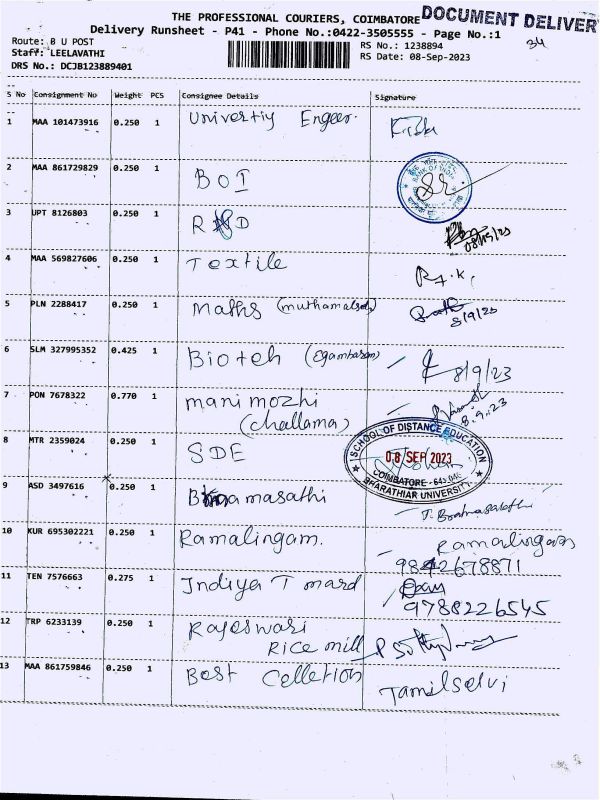 THE PROFESSIONAL COURIERS, COIMBATORE DOCUMENT DELIVER
Delivery Runsheet - P41 - Phone No.:0422-3505555 - Page No.:1
34
Route: 8 U POST
RS No.: 1238894
Staff: LEELAVATHI
RS Date: 08-Sep-2023
DRS No.: DCJB123889401
S No Consignment No Weight PCS Consignee Details Signature
1 MAA 101473916 0.250 1 Univertiy Engeer.
2 MAA 861729829 0.250 1 BOI
BANK OF INDIA
3 UPT 8126803 0.250 1 R&D
08/09/23
4 MAA 569827606 0.250 1 Textile R.K.
5 PLN 2288417 0.250 1 Maths (muthamalselvi)
8/9/23
6 SLM 327995352 0.425 1 Bioteh (Egambaram) 8/9/23
7 PON 7678322 0.770 1 manimozhi
(challama)
8.9.23
8 MTR 2359024 0.250 1 SDE
SCHOOL OF DISTANCE EDUCATION
08 SEP 2023
COIMBATORE - 641 046
BHARATHIAR UNIVERSITY
9 ASD 3497616 0.250 1 masathi
10 KUR 695302221 0.250 1 Ramalingam. Ramalingam
9842678871
11 TEN 7576663 0.275 1 Indiya T mard
9788226545
12 TRP 6233139 0.250 1 Rajeswari
Rice mill
13 MAA 861759846 0.250 1 Best Celletion Tamilselvi